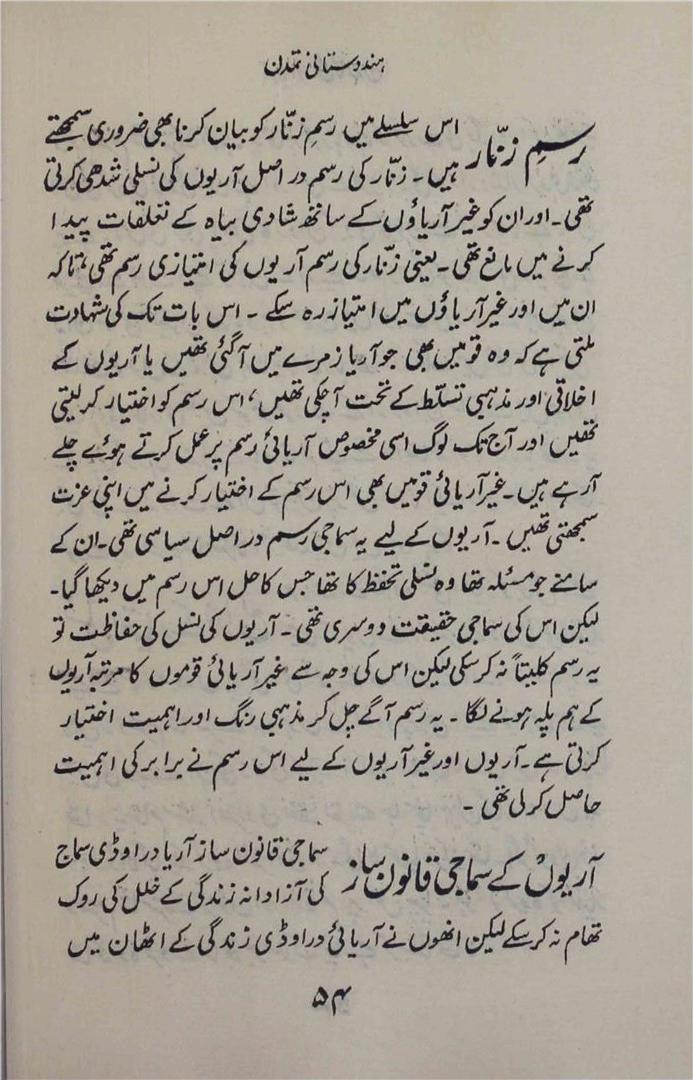 ہندوستانی تمدن
رسمِ زنّار
اس سلسلے میں رسمِ زنّار کو بیان کرنا بھی ضروری سمجھتے
ہیں۔ زنّار کی رسم در اصل آریوں کی نسلی شدھی کرتی
تھی۔ اور ان کو غیر آریاؤں کے ساتھ شادی بیاہ کے تعلقات پیدا
کرنے میں مانع تھی۔ یعنی زنّار کی رسم آریوں کی امتیازی رسم تھی، تاکہ
ان میں اور غیر آریاؤں میں امتیاز رہ سکے۔ اس بات تک کی شہادت
ملتی ہے کہ وہ قومیں بھی جو آریا زمرے میں آگئی تھیں یا آریوں کے
اخلاقی اور مذہبی تسلط کے تحت آچکی تھیں، اس رسم کو اختیار کرلیتی
تھیں اور آج تک لوگ اسی مخصوص آریائی رسم پر عمل کرتے ہوئے چلے
آرہے ہیں۔ غیر آریائی قومیں بھی اس رسم کے اختیار کرنے میں اپنی عزت
سمجھتی تھیں۔ آریوں کے لیے یہ سماجی رسم در اصل سیاسی تھی۔ ان کے
سامنے جو مسئلہ تھا وہ نسلی تحفظ کا تھا جس کا حل اس رسم میں دیکھا گیا۔
لیکن اس کی سماجی حقیقت دوسری تھی۔ آریوں کی نسل کی حفاظت تو
یہ رسم کلیتاً نہ کرسکی لیکن اس کی وجہ سے غیر آریائی قوموں کا مرتبہ آریوں
کے ہم پلہ ہونے لگا۔ یہ رسم آگے چل کر مذہبی رنگ اور اہمیت اختیار
کرتی ہے۔ آریوں اور غیر آریوں کے لیے اس رسم نے برابر کی اہمیت
حاصل کرلی تھی۔
آریوں کے سماجی قانون ساز
سماجی قانون ساز آریا دراوڈی سماج
کی آزادانہ زندگی کے خلل کی روک
تھام نہ کرسکے لیکن انھوں نے آریائی دراوڈی زندگی کے اٹھان میں
۵۴